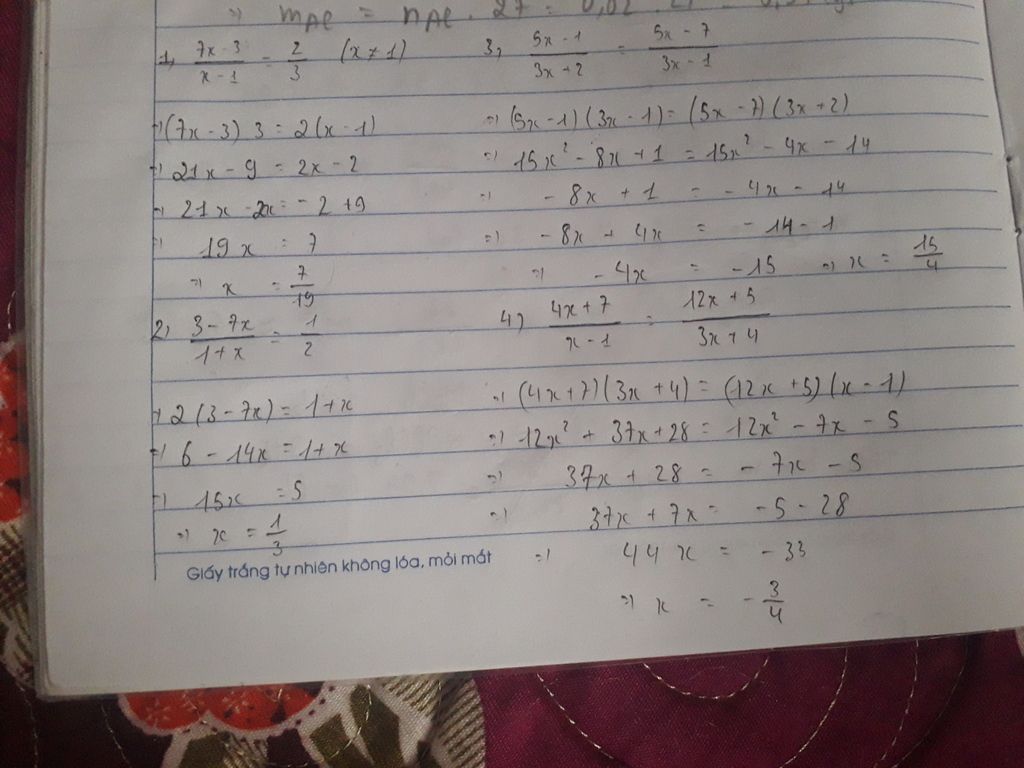 => m_Al = n_Al . 27 = 0,02 .
1, (7x - 3)/(x - 1) = 2/3 (x ≠ 1)
=> (7x - 3) 3 = 2(x - 1)
=> 21x - 9 = 2x - 2
=> 21x - 2x = - 2 + 9
=> 19x = 7
=> x = 7/19
2, (3 - 7x)/(1 + x) = 1/2
=> 2(3 - 7x) = 1 + x
=> 6 - 14x = 1 + x
=> 15x = 5
=> x = 1/3
3, (5x - 1)/(3x + 2) = (5x - 7)/(3x - 1)
=> (5x - 1)(3x - 1) = (5x - 7)(3x + 2)
=> 15x² - 8x + 1 = 15x² - 4x - 14
=> - 8x + 1 = - 4x - 14
=> - 8x + 4x = - 14 - 1
=> - 4x = - 15 => x = 15/4
4, (4x + 7)/(x - 1) = (12x + 5)/(3x + 4)
=> (4x + 7)(3x + 4) = (12x + 5)(x - 1)
=> 12x² + 37x + 28 = 12x² - 7x - 5
=> 37x + 28 = - 7x - 5
=> 37x + 7x = - 5 - 28
=> 44x = - 33
=> x = - 3/4
Giấy trắng tự nhiên không lóa, mỏi mắt